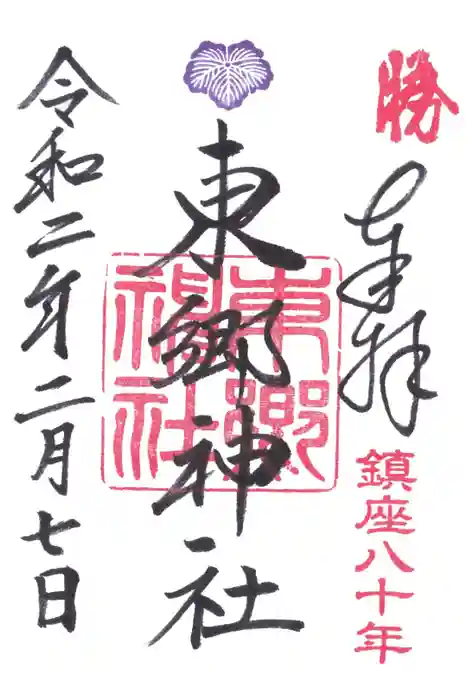 勝
奉拝
鎮座八十年
東郷神社
東郷神社
令和二年二月七日